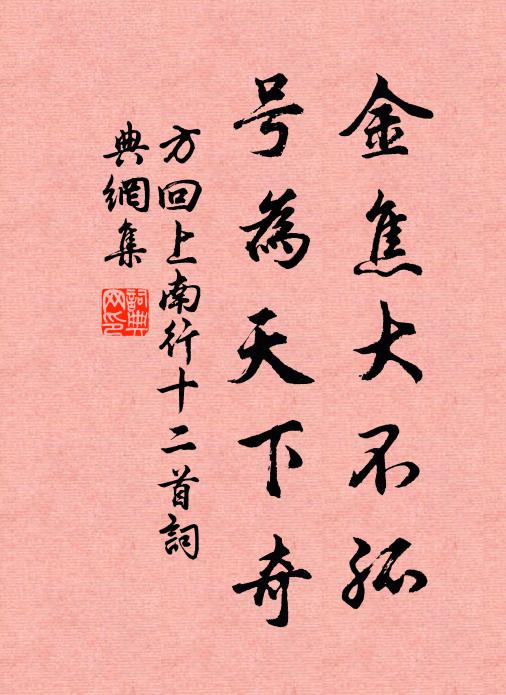 金焦大不孤
号為天下奇
方回上南行十二首詞
典網集
詞典网印